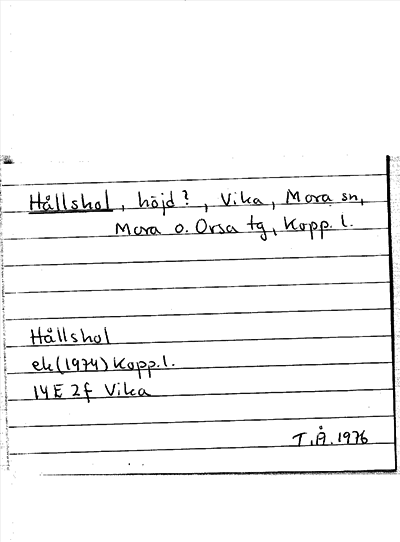 Hållshol, höjd?, Vika, Mora sn,
Mora o. Orsa tg, Kopp. l.
Hållshol
ek (1974) Kopp. l.
14E 2f Vika
T.Å. 1976